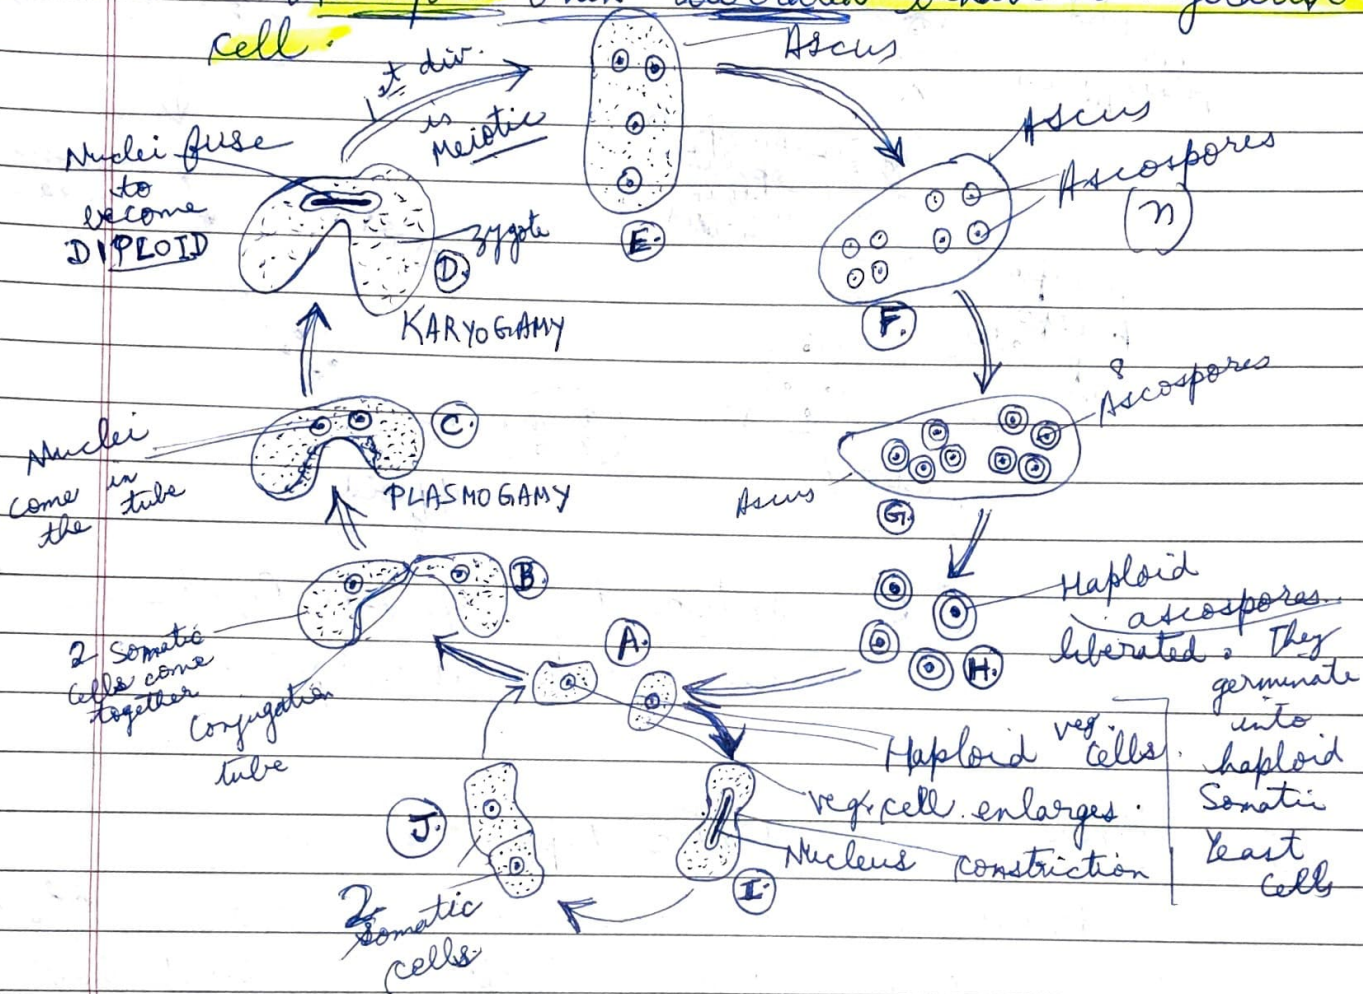 cell.
Ascus
1st div.
is
Meiotic
Nuclei fuse
to
become
DIPLOID
zygote
D.
KARYOGAMY
E.
Ascus
Ascospores
n
F.
Nuclei
come in
the tube
C.
PLASMOGAMY
8
Ascospores
Ascus
G.
B
2 Somatic
cells come
together
Conjugation
tube
A.
H.
Haploid
ascospores
liberated. They
germinate
into
haploid
Somatic
Yeast
cells
Haploid veg. cells.
veg. cell enlarges.
Nucleus
constriction
I.
J.
2
Somatic
cells.